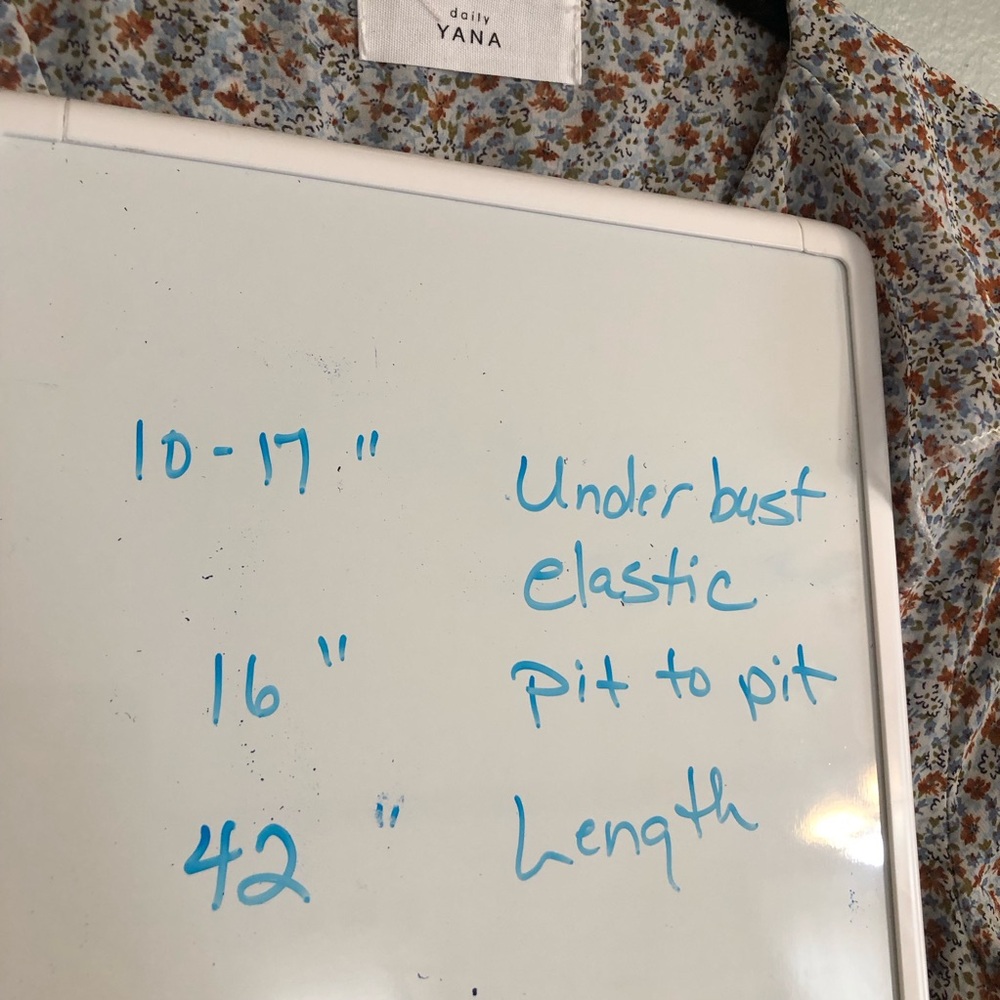 daily
YANA
10-17" Under bust
elastic
16" pit to pit
42" Length